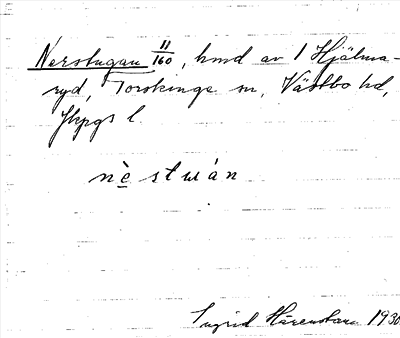 Nerstugan 11/160, hmd av 1 Hjälma-
ryd, Torskinge sn, Västbo hd,
Jkpgs l.
nèstuán
Ingrid 1930